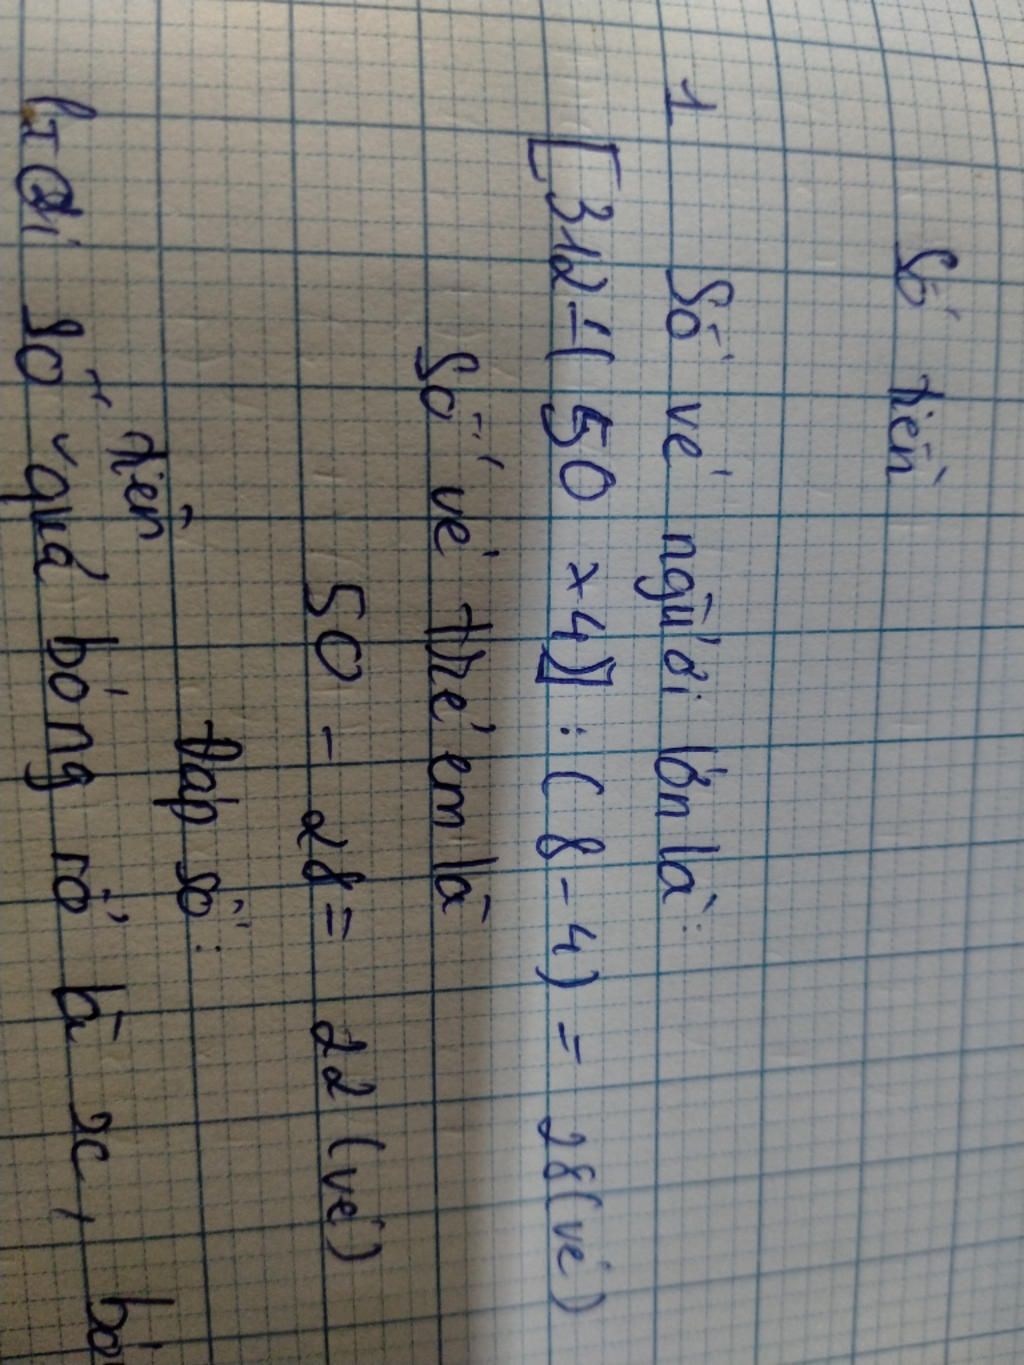 Số tiền
1 Số vé người lớn là:
[312 - ( 50 x 4)] : ( 8 - 4) = 28 (vé)
Số vé trẻ em là
50 - 28 = 22 (vé)
Đáp số:
tiền
Gọi số quả bóng rổ là x,